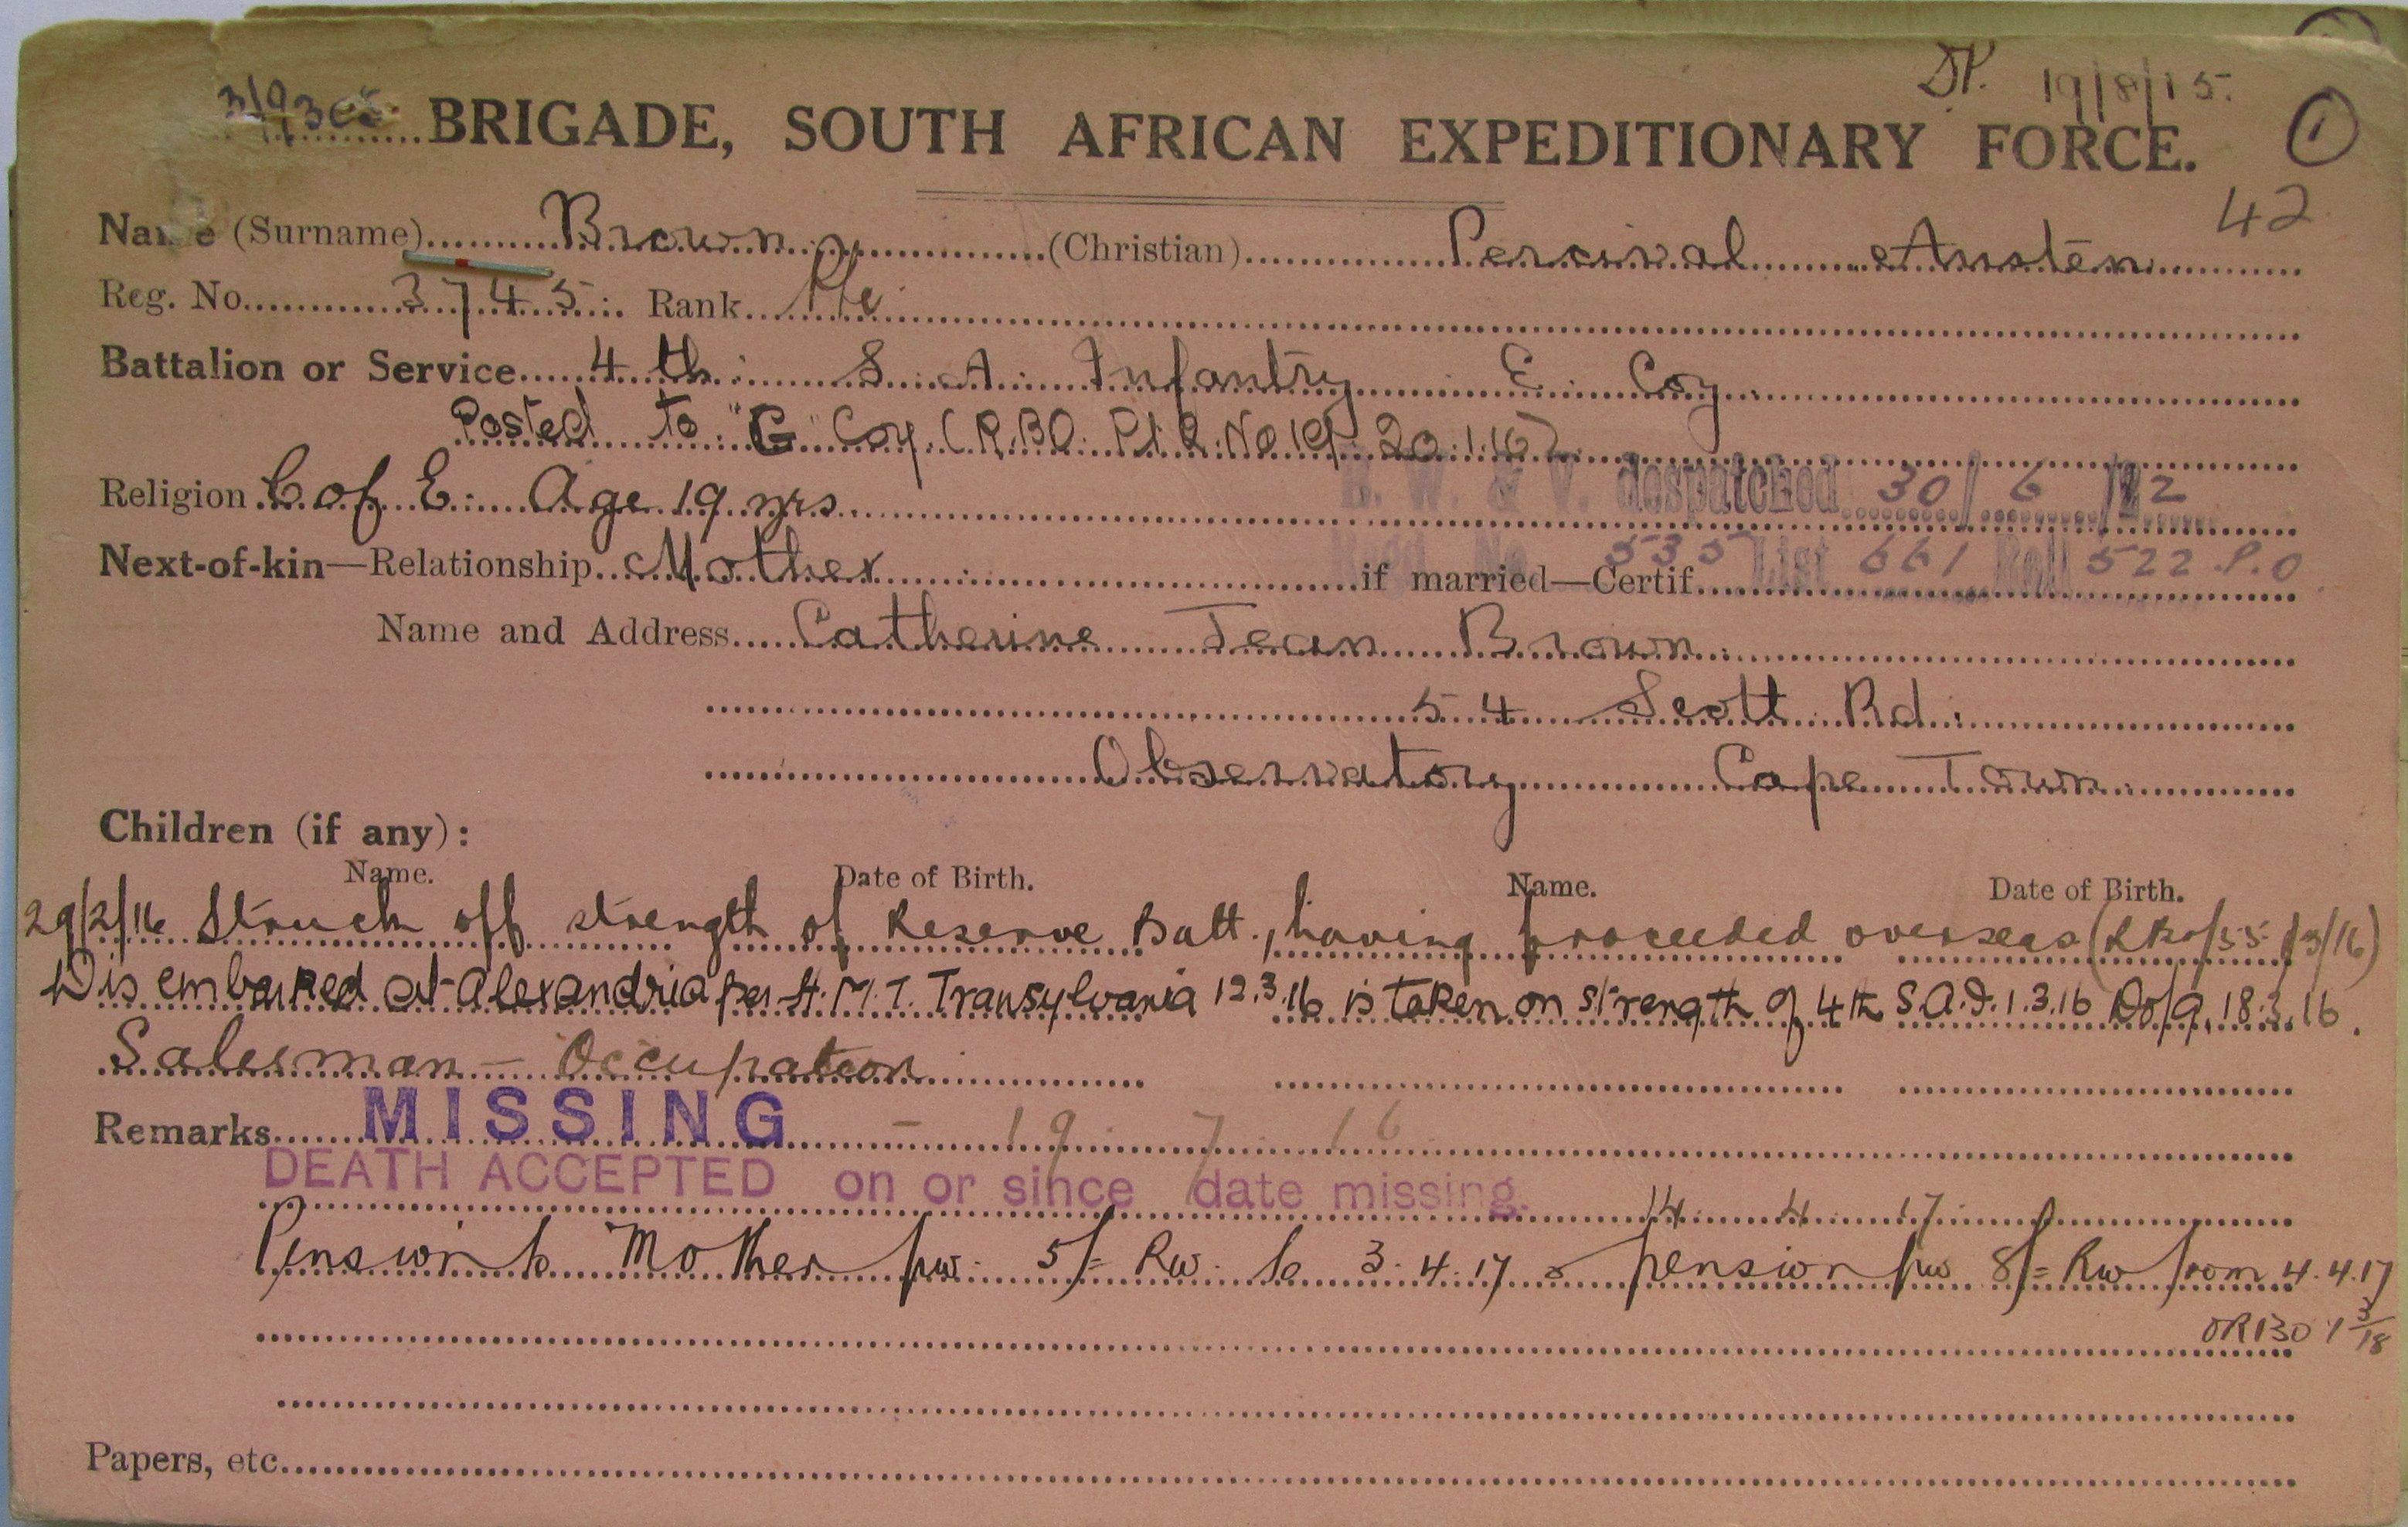 DP. 19/8/15.
BRIGADE, SOUTH AFRICAN EXPEDITIONARY FORCE. 1
42
Name (Surname) Brown (Christian) Percival Austen
Reg. No. 3745 Rank Pte
Battalion or Service 4th S. A. Infantry E. Coy
Posted to "G" Coy. (R.B.O. Pt 2. No 19 20.1.16)
Religion C of E. Age 19 yrs B. W. & V. despatched 30/6/22
Next-of-kin—Relationship Mother if married—Certif. No. 535 List 661 Roll 522 P.O
Name and Address Catherine Jean Brown
54 Scott Rd.
Observatory Cape Town
Children (if any):
Name. Date of Birth. Name. Date of Birth.
29/2/16 Struck off strength of Reserve Batt., having proceeded overseas
Disembarked at Alexandria per H.M.T. Transylvania 12.3.16 is taken on strength of 4th S.A.I. 1.3.16 Do/9, 18.3.16.
Salesman — Occupation
Remarks MISSING - 19 7 16
DEATH ACCEPTED on or since date missing. 14 4 17
Pension to Mother pw. 5/= Rw. to 3.4.17 & pension pw 8/= Rw from 4.4.17
Papers, etc.